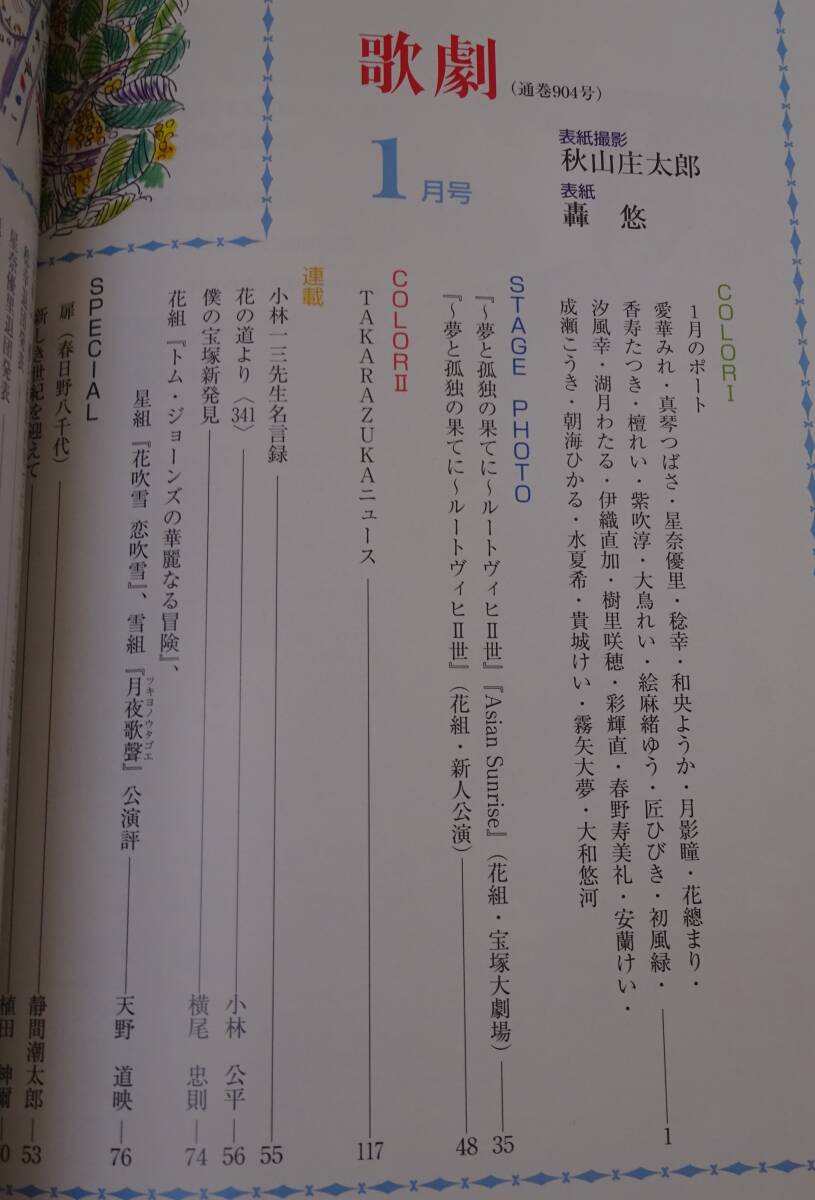 歌劇
(通巻904号)
1月号
表紙撮影
秋山庄太郎
表紙
轟 悠
COLOR Ⅰ
1月のポート
愛華みれ・真琴つばさ・星奈優里・稔幸・和央ようか・月影瞳・花總まり・
香寿たつき・檀れい・紫吹淳・大鳥れい・絵麻緒ゆう・匠ひびき・初風緑・
汐風幸・湖月わたる・伊織直加・樹里咲穂・彩輝直・春野寿美礼・安蘭けい・
成瀬こうき・朝海ひかる・水夏希・貴城けい・霧矢大夢・大和悠河
1
STAGE PHOTO
『～夢と孤独の果てに～ルートヴィヒⅡ世』『Asian Sunrise』(花組・宝塚大劇場) 35
『～夢と孤独の果てに～ルートヴィヒⅡ世』(花組・新人公演) 48
COLOR Ⅱ
TAKARAZUKAニュース 117
連載
小林一三先生名言録 55
花の道より〈341〉 小林 公平 56
僕の宝塚新発見 横尾 忠則 74
花組『トム・ジョーンズの華麗なる冒険』、
星組『花吹雪 恋吹雪』、雪組『月夜歌聲』公演評 天野 道映 76
ツキヨノウタゴエ
SPECIAL
扉(春日野八千代) 静間潮太郎 53
新しき世紀を迎えて 植田 紳爾
星奈優里退団発表